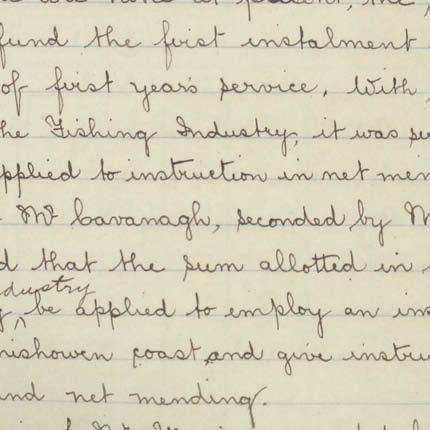 at present, the
fund the first instalment
of first year's service. With
the Fishing Industry, it was su
pplied to instruction in net men
Mr Cavanagh, seconded by M
d that the sum allotted in
dustry
g ^ be applied to employ an ins
nishowen coast and give instru
and net mending.